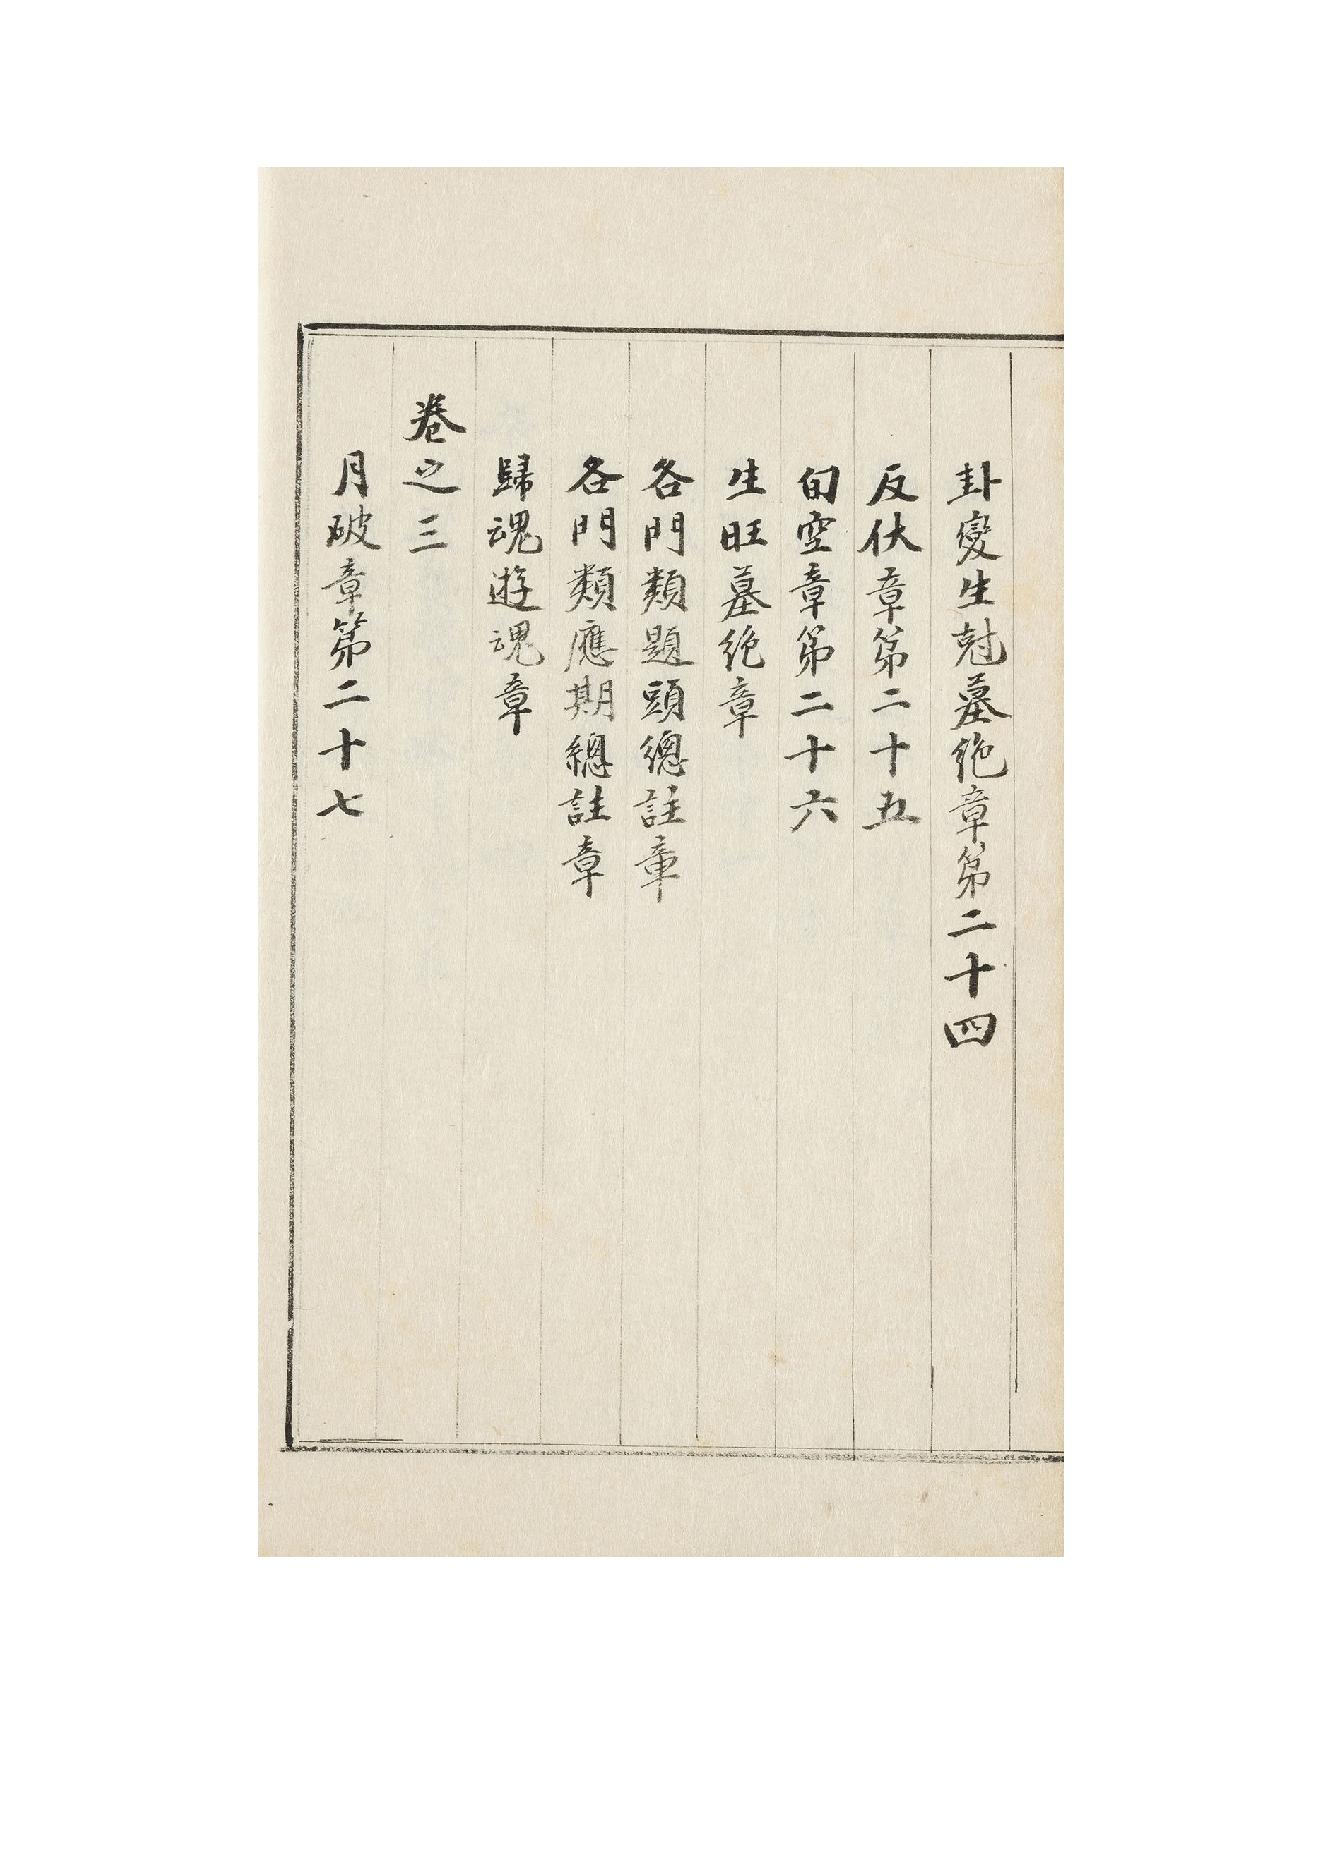 卦變生尅墓絶章第二十四
反伏章第二十五
旬空章第二十六
生旺墓絶章
各門類題頭總註章
各門類應期總註章
歸魂遊魂章
卷之三
月破章第二十七